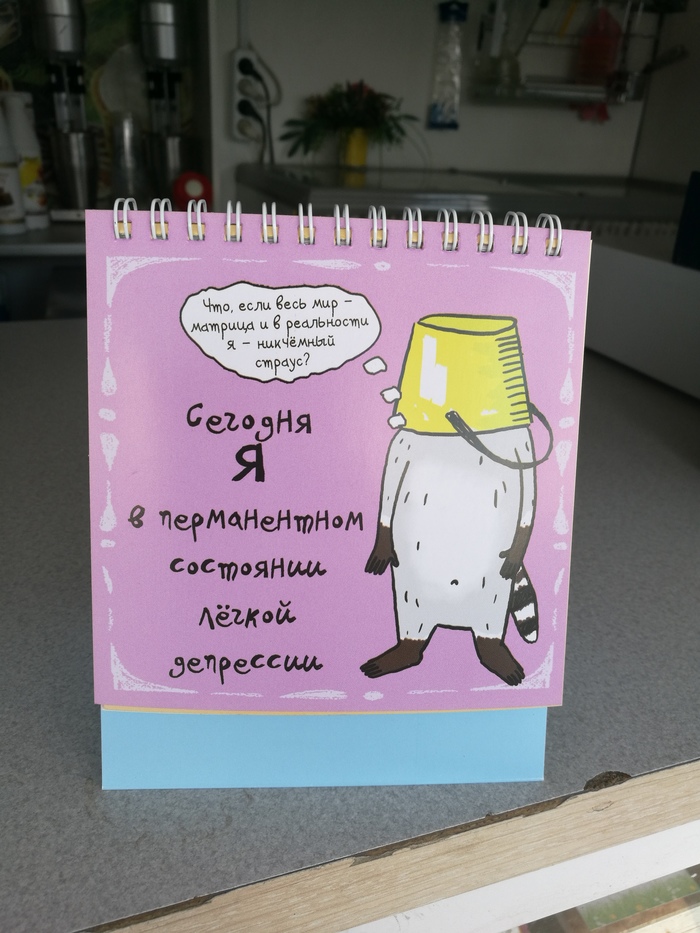 Что, если весь мир –
матрица и в реальности
я – никчёмный
страус?
Сегодня
Я
в перманентном
состоянии
лёгкой
депрессии